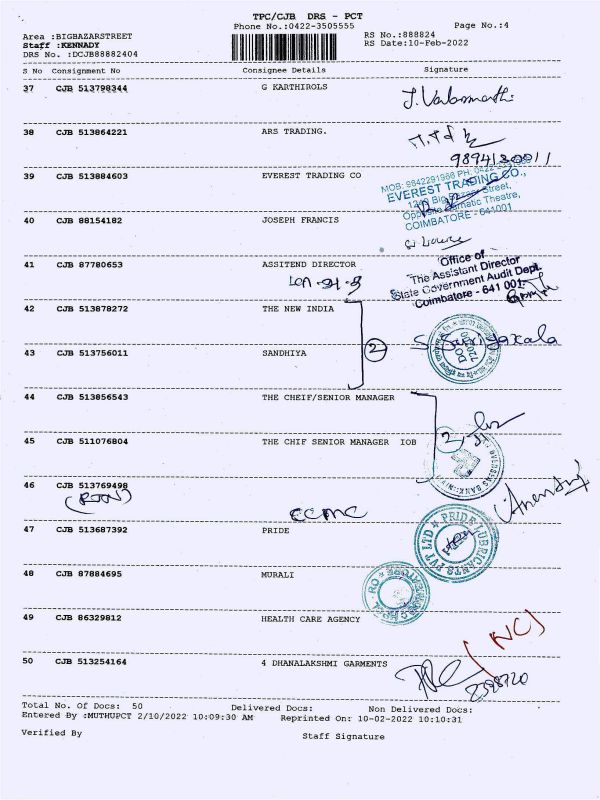 TPC/CJB DRS - PCT
Phone No.:0422-3505555
Page No.:4
Area :BIGBAZARSTREET
RS No.:888824
Staff :KENNADY
RS Date:10-Feb-2022
DRS No. :DCJB88882404
S No Consignment No Consignee Details Signature
37 CJB 513798344 G KARTHIROLS
38 CJB 513864221 ARS TRADING.
39 CJB 513884603 EVEREST TRADING CO
MOB: 9842291966 PH: 0422
EVEREST TRADING CO.,
Street,
Opposite Theatre,
COIMBATORE - 641001
40 CJB 88154182 JOSEPH FRANCIS
41 CJB 87780653 ASSITEND DIRECTOR
Office of
The Assistant Director
State Government Audit Dept.
Coimbatore - 641 001.
42 CJB 513878272 THE NEW INDIA
2
43 CJB 513756011 SANDHIYA
44 CJB 513856543 THE CHEIF/SENIOR MANAGER
2
45 CJB 511076804 THE CHIF SENIOR MANAGER IOB
46 CJB 513769498
CCMC
47 CJB 513687392 PRIDE
PRIDE LUBRICANTS PVT LTD
48 CJB 87884695 MURALI
49 CJB 86329812 HEALTH CARE AGENCY
NC
50 CJB 513254164 4 DHANALAKSHMI GARMENTS
Total No. Of Docs: 50 Delivered Docs: Non Delivered Docs:
Entered By :MUTHUPCT 2/10/2022 10:09:30 AM Reprinted On: 10-02-2022 10:10:31
Verified By Staff Signature